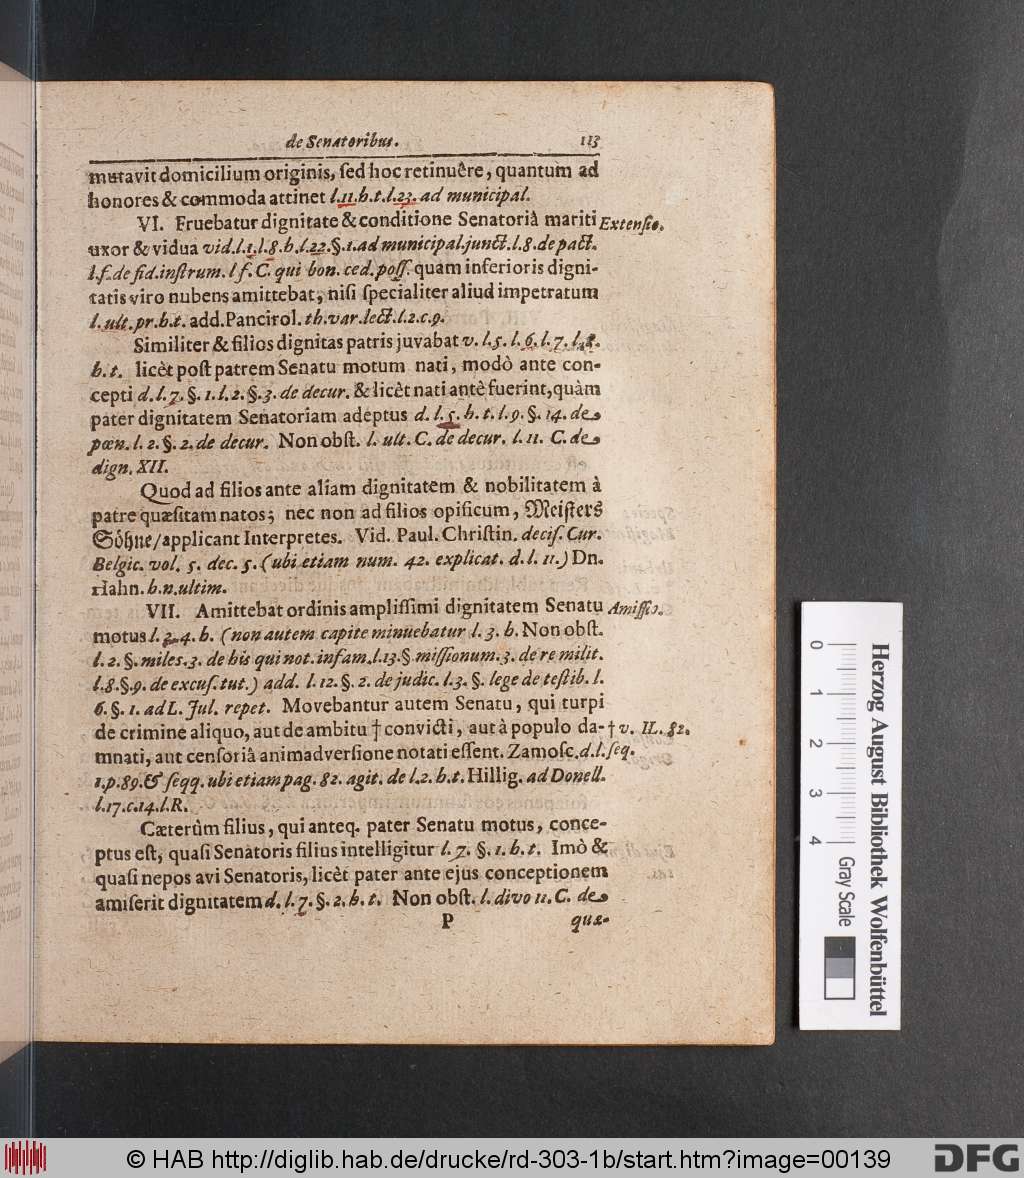 de Senatoribus. 113
mutavit domicilium originis, sed hoc retinuêre, quantum ad
honores & commoda attinet l.11.h.t.l.23. ad municipal.
VI. Fruebatur dignitate & conditione Senatoriâ mariti Extensio.
uxor & vidua vid.l.1.l.8.h.l.22.§.1.ad municipal.junct.l.8.de pact.
l.f.de fid.instrum. l f. C. qui bon. ced. poss. quam inferioris digni-
tatis viro nubens amittebat, nisi specialiter aliud impetratum
l.ult.pr.h.t. add.Pancirol. th.var.lect.l.2.c.9.
Similiter & filios dignitas patris juvabat v. l.5. l.6.l.7.l.8.
h.t. licèt post patrem Senatu motum nati, modò ante con-
cepti d.l.7.§.1.l.2.§.3. de decur. & licèt nati antè fuerint, quàm
pater dignitatem Senatoriam adeptus d. l.5. h. t. l.9. §. 14. de
pœn. l. 2. §. 2. de decur. Non obst. l. ult. C. de decur. l. 11. C. de
dign. XII.
Quod ad filios ante aliam dignitatem & nobilitatem à
patre quæsitam natos; nec non ad filios opificum, Meisters
Söhne/applicant Interpretes. Vid. Paul. Christin. decis. Cur.
Belgic. vol. 5. dec. 5. (ubi etiam num. 42. explicat. d. l. 11.) Dn.
Hahn. h.n.ultim.
VII. Amittebat ordinis amplissimi dignitatem Senatu Amissio.
motus l. 2.4. h. (non autem capite minuebatur l. 3. h. Non obst.
l. 2. §. miles.3. de his qui not. infam.l.13.§ missionum.3. de re milit.
l.8.§.9. de excus.tut.) add. l. 12. §. 2. de judic. l.3. §. lege de testib. l.
6. §. 1. ad L. Jul. repet. Movebantur autem Senatu, qui turpi
de crimine aliquo, aut de ambitu † convicti, aut à populo da- † v. IL. 82.
mnati, aut censoriâ animadversione notati essent. Zamosc. d.l. seq.
1.p.89.& seqq. ubi etiam pag. 82. agit. de l.2.h.t. Hillig. ad Donell.
l.17.c.14.l.R.
Cæterùm filius, qui anteq. pater Senatu motus, conce-
ptus est, quasi Senatoris filius intelligitur l. 7. §. 1. h. t. Imò &
quasi nepos avi Senatoris, licèt pater ante ejus conceptionem
amiserit dignitatem d. l. 7. §. 2. h. t. Non obst. l. divo 11. C. de
P quæ-
0 1 2 3 4
Gray Scale
Herzog August Bibliothek Wolfenbüttel
© HAB http://diglib.hab.de/drucke/rd-303-1b/start.htm?image=00139
DFG